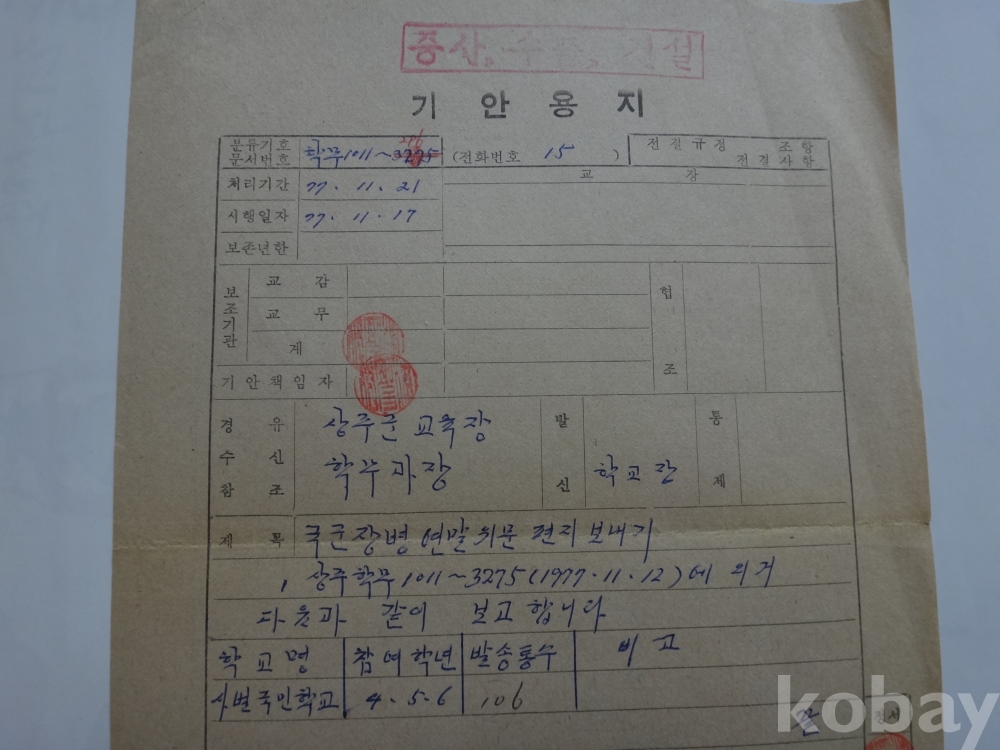 증산, 수출, 건설
기 안 용 지
분류기호
문서번호 학무1011~3275 276 (전화번호 15 ) 전결규정 조항
전결사항
처리기간 77. 11. 21 교 장
시행일자 77. 11. 17
보존년한
보조기관 교 감 협조
교 무
계
기안책임자
경 유 상주군 교육장 발신 학교장 통제
수 신
참 조 학무과장
제 목 국군장병 연말 위문 편지 보내기
1, 상주학무1011~3275(1977.11.12)에 의거
다음과 같이 보고합니다
학교명 참여학년 발송통수 비고
사벌국민학교 4.5.6 106
끝
정서
kobay